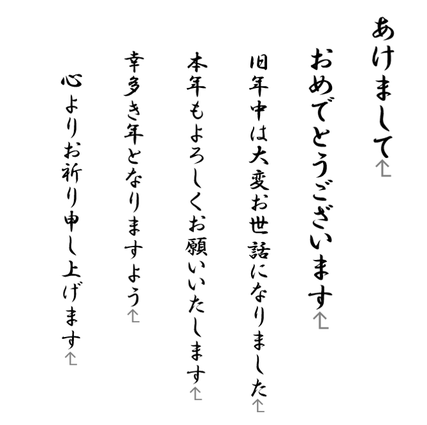 あけまして
おめでとうございます
旧年中は大変お世話になりました
本年もよろしくお願いいたします
幸多き年となりますよう
心よりお祈り申し上げます